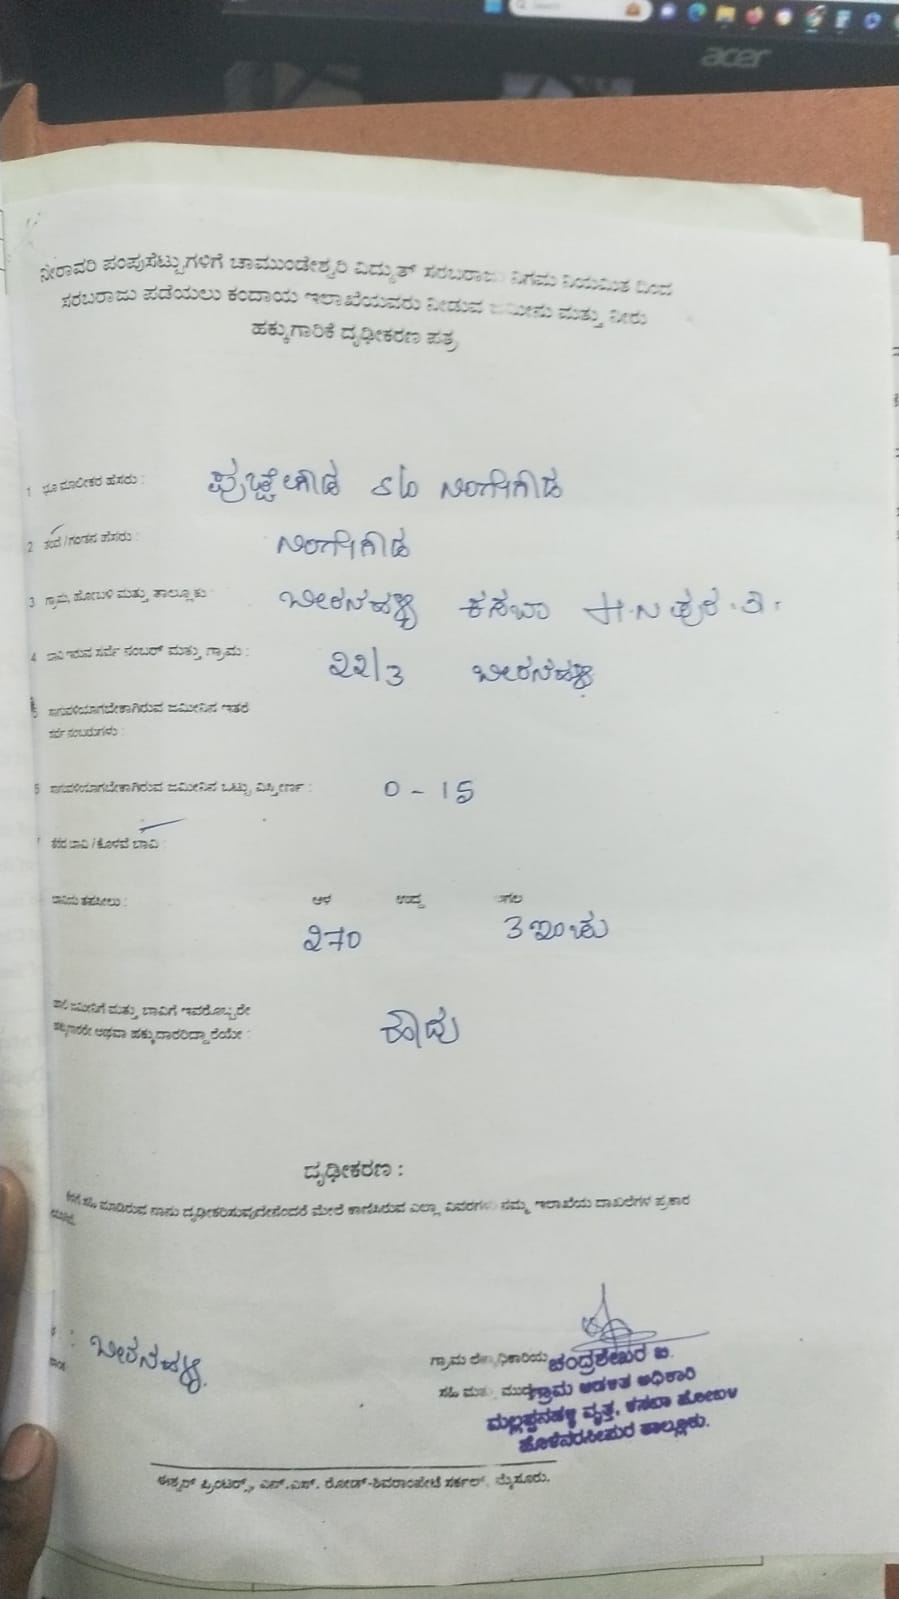 Search
acer
ನೀರಾವರಿ ಪಂಪುಸೆಟ್ಟುಗಳಿಗೆ ಚಾಮುಂಡೇಶ್ವರಿ ವಿದ್ಯುತ್ ಸರಬರಾಜು ನಿಗಮ ನಿಯಮಿತ ದಿಂದ
ಸರಬರಾಜು ಪಡೆಯಲು ಕಂದಾಯ ಇಲಾಖೆಯವರು ನೀಡುವ ಜಮೀನು ಮತ್ತು ನೀರು
ಹಕ್ಕುಗಾರಿಕೆ ದೃಢೀಕರಣ ಪತ್ರ
1 ಭೂ ಮಾಲೀಕರ ಹೆಸರು : ಪುಟ್ಟೇಗೌಡ S/o ನಿಂಗೇಗೌಡ
2 ತಂದೆ / ಗಂಡನ ಹೆಸರು : ನಿಂಗೇಗೌಡ
3 ಗ್ರಾಮ, ಹೋಬಳಿ ಮತ್ತು ತಾಲ್ಲೂಕು : ಬೀರನಹಳ್ಳಿ ಕಸಬಾ ಹೊ.ನ.ಪುರ.ತಾ.
4 ಬಾವಿ ಇರುವ ಸರ್ವೆ ನಂಬರ್ ಮತ್ತು ಗ್ರಾಮ : 22/3 ಬೀರನಹಳ್ಳಿ
5 ಸಾಗುವಳಿಯಾಗಬೇಕಾಗಿರುವ ಜಮೀನಿನ ಇತರೆ
ಸರ್ವೆ ನಂಬರುಗಳು :
6 ಸಾಗುವಳಿಯಾಗಬೇಕಾಗಿರುವ ಜಮೀನಿನ ಒಟ್ಟು ವಿಸ್ತೀರ್ಣ : 0-15
ತೆರೆದ ಬಾವಿ / ಕೊಳವೆ ಬಾವಿ :
ಬಾವಿಯ ತಹಸೀಲು : ಆಳ ಉದ್ದ ಅಗಲ
270 3 ಇಂಚು
ಜಮೀನಿಗೆ ಮತ್ತು ಬಾವಿಗೆ ಇವರೊಬ್ಬರೇ
ಹಕ್ಕುದಾರರೇ ಅಥವಾ ಹಕ್ಕುದಾರರಿದ್ದಾರೆಯೇ : ಹೌದು
ದೃಢೀಕರಣ :
ಕೆಳಗೆ ಸಹಿ ಮಾಡಿರುವ ನಾನು ದೃಢೀಕರಿಸುವುದೇನೆಂದರೆ ಮೇಲೆ ಕಾಣಿಸಿರುವ ಎಲ್ಲಾ ವಿವರಗಳು ನಮ್ಮ ಇಲಾಖೆಯ ದಾಖಲೆಗಳ ಪ್ರಕಾರ
: ಬೀರನಹಳ್ಳಿ
ಗ್ರಾಮ ಲೆಕ್ಕಾಧಿಕಾರಿಯ ಚಂದ್ರಶೇಖರ ಐ.
ಸಹಿ ಮತ್ತು ಗ್ರಾಮ ಆಡಳಿತ ಅಧಿಕಾರಿ
ಮಲ್ಲಪ್ಪನಹಳ್ಳಿ ವೃತ್ತ, ಕಸಬಾ ಹೋಬಳಿ
ಹೊಳೆನರಸೀಪುರ ತಾಲ್ಲೂಕು.
ಈಶ್ವರ್ ಪ್ರಿಂಟರ್ಸ್, ಎನ್.ಎಸ್. ರೋಡ್-ಶಿವರಾಂಪೇಟೆ ಸರ್ಕಲ್, ಮೈಸೂರು.